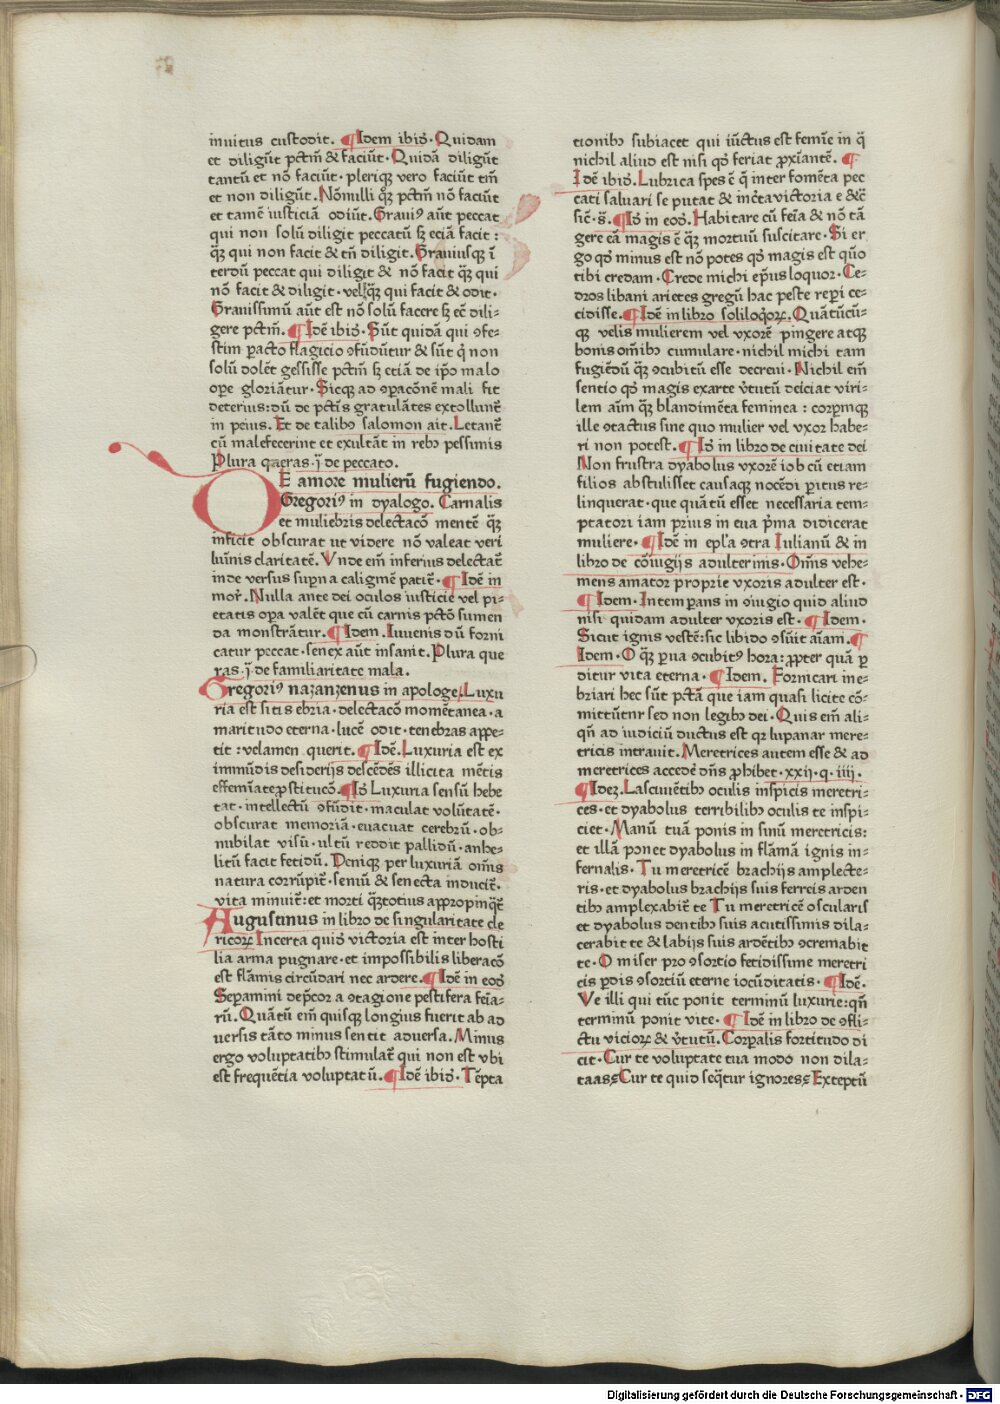 inuitus custodit. ¶Idem ibid̄. Quidam
et diligūt pctm̄ & faciūt. Quidā diligūt
tantū et nō faciūt. pleriqꝫ vero faciūt tm̄
et non diligūt. Nōnulli qꝫ̄ pctm̄ nō faciūt
et tamē iusticiā odiūt. Grauiꝰ aūt peccat
qui non solū diligit peccatū sꝫ eciā facit:
qꝫ̄ qui non facit & tn̄ diligit. Grauiusqꝫ ī
terdū peccat qui diligit & nō facit qꝫ̄ qui
nō facit & diligit. velqꝫ̄ qui facit & odit.
Grauissimū aūt est nō solū facere sꝫ ec̄ dili⸗
gere pctm̄. ¶Idē ibid̄. Sūt quidā qui ꝯfe⸗
stim ꝑacto flagicio ꝯfūdūtur & sūt qͥ non
solū dolēt gessisse pctm̄ sꝫ eciā de ip̄o malo
oꝑe gloriātur. Sicqꝫ ad ꝯꝑacōnē mali fit
deterius: dū de pctīs gratulātes extollunt̄
in peius. Et de talibꝫ salomon ait. Letant̄
cū malefecerint et exultāt in rebꝫ pessimis
Plura queras. j̄ de peccato.
DE amore mulierū fugiendo.
Gregoriꝰ in dyalogo. Carnalis
et muliebris delectacō mentē qꝫ̄
inficit obscurat ut videre nō valeat veri
luīnis claritatē. Vnde em̄ inferius delectat̄
inde versus suꝑna caligīnē patit̄. ¶Idē in
mor̄. Nulla ante dei oculos iusticie vel pi⸗
etatis oꝑa valēt que cū carnis pctō sumen
da monstrātur. ¶Idem. Iuuenis dū forni
catur peccat. senex aūt insanit. Plura que
ras. j̄ de familiaritate mala.
Gregoriꝰ nazanzenus in apologe. Luxu
ria est sitis ebria. delectacō momētanea. a
maritudo eterna. lucē odit. tenebras appe⸗
tit: velamen querit. ¶Idē. Luxuria est ex
immūdis desiderijs descēdēs illicita mētis
effemīate ꝓstitucō. ¶Id̄ Luxuria sensū hebe
tat. intellectū ꝯfūdit. maculat volūtatē.
obscurat memoriā. euacuat cerebrū. ob⸗
nubilat visū. vltū reddit pallidū. anhe⸗
litū facit fetidū. Deniqꝫ per luxuriā om̄īs
natura corrūpit̄. seniū & senecta inducit̄.
vita minuit̄: et morti qꝫ̄totius appropinq̄t̄
Augustinus in libro de singularitate cle
ricoꝝ Incerta quid̄ victoria est inter hosti
lia arma pugnare. et impossibilis liberacō
est flāmis circūdari nec ardere. ¶Idē in eod̄
Seꝑamini dep̄cor a ꝯtagione pestifera fēīa⸗
rū. Quātū em̄ quisqꝫ longius fuerit ab ad
uersis tāto minus sentit aduersa. Minus
ergo voluptatibꝫ stimulat̄ qui non est vbi
est frequētia voluptatū. ¶Idē ibid̄. Tēpta
tionibꝫ subiacet qui iūctus est femīe in q̄
nichil aliud est nisi qd̄ feriat ꝓxīantē. ¶
Idē ibid̄. Lubrica spes ē q̄ inter fomēta pec
cati saluari se putat & inc̄ta victoria e &c̄
sic̄. s̄. ¶Id̄ in eod̄. Habitare cū fēīa & nō tā
gere eā magis ē qꝫ̄ mortuū suscitare. Si er
go qd̄ minus est nō potes qd̄ magis est quō
tibi credam. Crede michi ep̄us loquor. Ce⸗
dros libani arietes gregū hac peste reꝑi ce⸗
cidisse. ¶Idē in libro soliloq̄oꝝ. Quātūcū⸗
qꝫ velis mulierem vel vxorē pingere atqꝫ
bonis om̄ibꝫ cumulare. nichil michi tam
fugiēdū qꝫ̄ ꝯcubitū esse decreui. Nichil em̄
sentio qd̄ magis exarte v̄tutū deiciat viri⸗
lem aīm qꝫ̄ blandimēta feminea: corꝑmqꝫ
ille ꝯtactus sine quo mulier vel vxor habe⸗
ri non potest. ¶Id̄ in libro de ciuitate dei
Non frustra dyabolus vxorē iob cū etiam
filios abstulisset causaqꝫ nocēdi ꝑitus re⸗
linquerat. que quātū esset necessaria tem⸗
ptatori iam prius in eua pͥma didicerat
muliere. ¶Idē in epl'a ꝯtra Iulianū & in
libro de cōiugijs adulterinis. Om̄īs vehe⸗
mens amator proprie vxoris adulter est.
¶Idem. Intemꝑans in ꝯiugio quid aliud
nisi quidam adulter vxoris est. ¶Idem.
Sicut ignis vestē: sic libido ꝯsūit aīam. ¶
Idem. O qꝫ̄ ꝑua ꝯcubitꝰ hora: ꝓpter quā ꝑ
ditur vita eterna. ¶Idem. Fornicari ine⸗
briari hec sūt pctā que iam quasi licite cō⸗
mittūtur sed non legibꝫ dei. Quis em̄ ali⸗
qn̄ ad iudiciū ductus est qꝛ lupanar mere⸗
tricis intrauit. Meretrices autem esse & ad
meretrices accedē dn̄s ꝓhibet. xxij. q. iiij.
¶Ideꝫ. Lasciuiētibꝫ oculis inspicis meretri⸗
ces. et dyabolus terribilibꝫ oculis te inspi⸗
ciet. Manū tuā ponis in sinū meretricis:
et illā ponet dyabolus in flāmā ignis in⸗
fernalis. Tu meretricē brachijs amplecte⸗
ris. et dyabolus brachijs suis ferreis arden
tibꝫ amplexabit̄ te Tu meretricē oscularis
et dyabolus dentibꝫ suis acutissimis dila⸗
cerabit te & labijs suis ardētibꝫ ꝯcremabit
te. O miser pro ꝯsortio fetidissime meretri
cis ꝑdis ꝯsortiū eterne iocūditatis. ¶Idē.
Ve illi qui tūc ponit terminū luxurie: qn̄
terminū ponit vite. ¶Idē in libro de ꝯfli⸗
ctu vicioꝝ & v̄tutū. Corꝑalis fortitudo di
cit. Cur te voluptate tua modo non dila⸗
taas? Cur te quid seq̄tur ignores? Exteptū